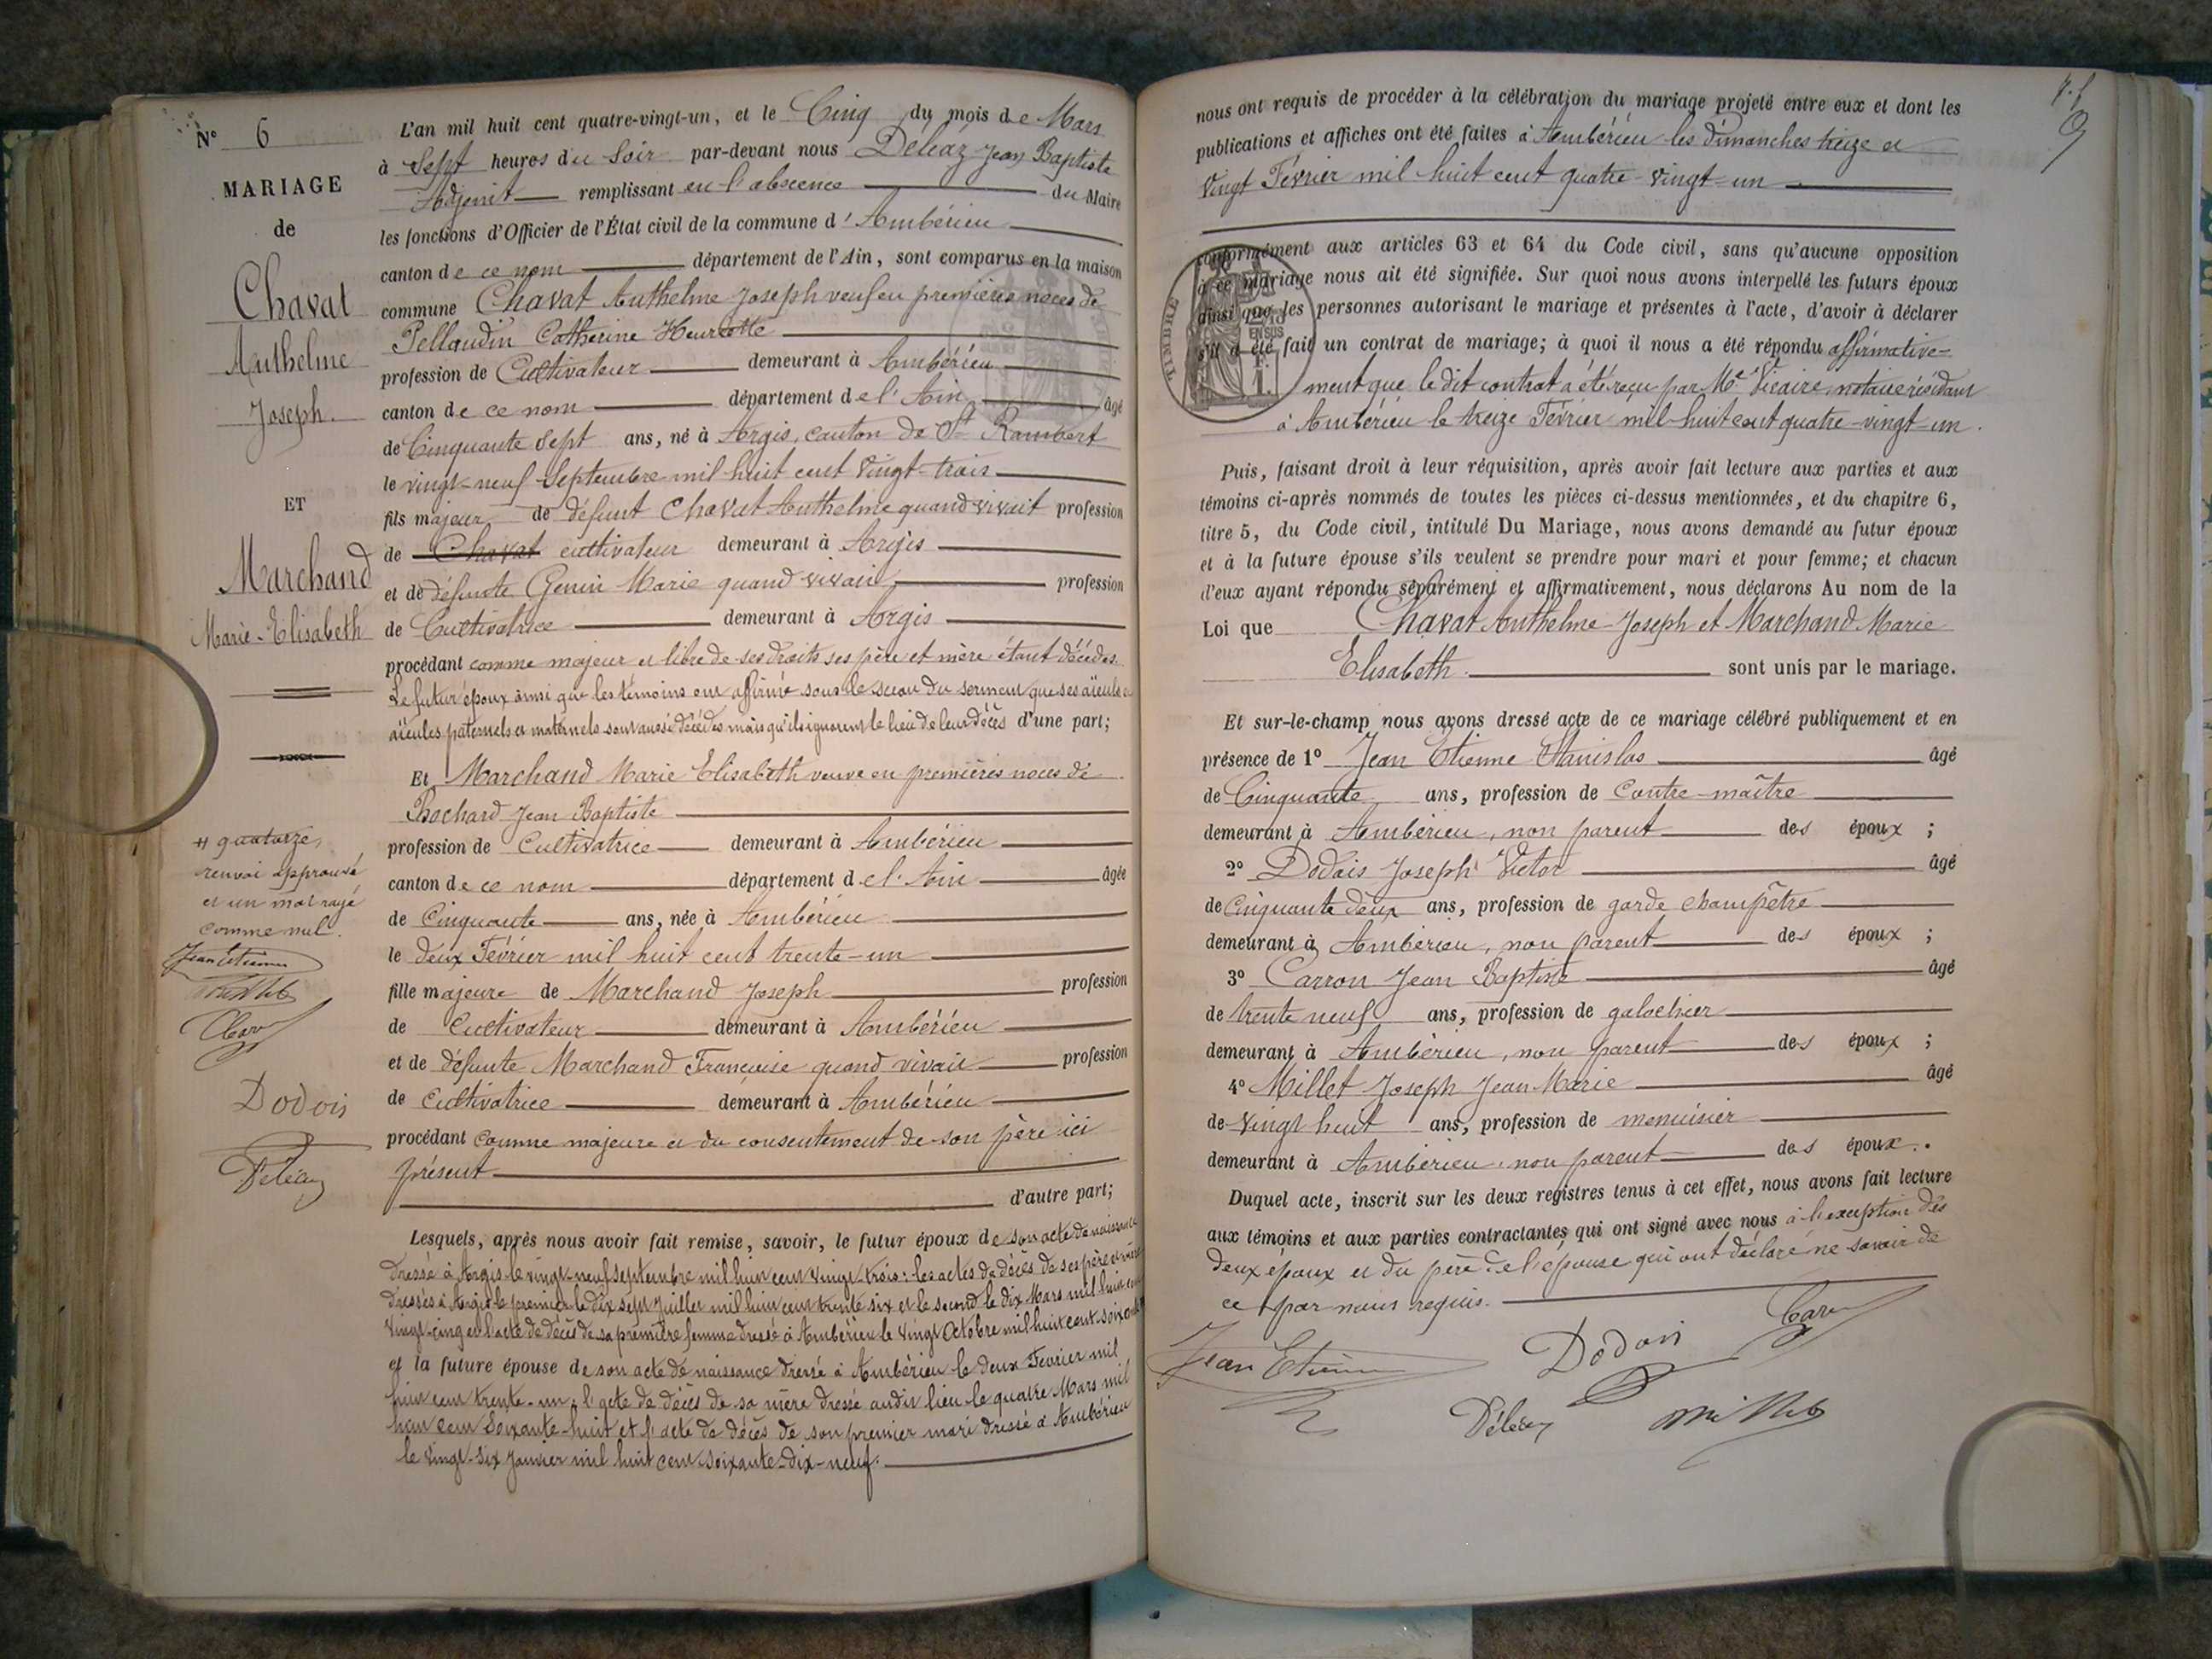 N° 6
MARIAGE
de
Chavat
Anthelme
Joseph.
ET
Marchand
Marie-Elisabeth
# quatorze,
renvoi approuvé
et un mot rayé
comme nul.
Jean Etienne
Millet
Carron
Dodois
Déléaz
L'an mil huit cent quatre-vingt-un, et le Cinq du mois de Mars
à Sept heures du Soir par-devant nous Déléaz Jean Baptiste
Adjoint remplissant en l'abscence du Maire
les fonctions d'Officier de l'État civil de la commune d'Ambérieu
canton de ce nom département de l'Ain, sont comparus en la maison
commune Chavat Anthelme Joseph veuf en premières noces de
Pellaudin Catherine Henriette
profession de Cultivateur demeurant à Ambérieu
canton de ce nom département de l'Ain âgé
de Cinquante Sept ans, né à Argis, canton de St Rambert
le vingt-neuf Septembre mil huit cent Vingt-trois
fils majeur de défunt Chavat Anthelme quand vivait profession
de Chavat cultivateur demeurant à Argis
et de défunte Genin Marie quand vivait profession
de Cultivatrice demeurant à Argis
procédant comme majeur et libre de ses droits ses père et mère étant décédés.
Le futur époux ainsi que les témoins ont affirmé sous le sceau du serment que ses aïeuls et
aïeules paternels et maternels sont aussi décédés mais qu'ils ignorent le lieu de leur décès d'une part;
Et Marchand Marie Elisabeth veuve en premières noces de
Bochard Jean Baptiste
profession de Cultivatrice demeurant à Ambérieu
canton de ce nom département de l'Ain âgée
de Cinquante ans, née à Ambérieu
le deux Février mil huit cent trente-un
fille majeure de Marchand Joseph profession
de Cultivateur demeurant à Ambérieu
et de défunte Marchand Françoise quand vivait profession
de Cultivatrice demeurant à Ambérieu
procédant comme majeure et du consentement de son père ici
présent
d'autre part;
Lesquels, après nous avoir fait remise, savoir, le futur époux de son acte de naissance
dressé à Argis le vingt-neuf septembre mil huit cent vingt-trois: les actes de décès de ses père et mère
dressés à Argis le premier le dix sept Juillet mil huit cent trente six et le second le dix Mars mil huit cent
vingt-cinq et l'acte de décès de sa première femme dressé à Ambérieu le vingt Octobre mil huit cent soixante
et la future épouse de son acte de naissance dressé à Ambérieu le deux Février mil
huit cent trente-un, l'acte de décès de sa mère dressé audit lieu le quatre Mars mil
huit cent Soixante-huit et l'acte de décès de son premier mari dressé à Ambérieu
le vingt-six Janvier mil huit cent soixante-dix-neuf.
nous ont requis de procéder à la célébration du mariage projeté entre eux et dont les
publications et affiches ont été faites à Ambérieu les dimanches treize et
Vingt Février mil huit cent quatre-vingt-un
conformément aux articles 63 et 64 du Code civil, sans qu'aucune opposition
à ce mariage nous ait été signifiée. Sur quoi nous avons interpellé les futurs époux
ainsi que les personnes autorisant le mariage et présentes à l'acte, d'avoir à déclarer
s'il a été fait un contrat de mariage; à quoi il nous a été répondu affirmative-
ment que le dit contrat a été reçu par Me Vicaire, notaire résidant
à Ambérieu le treize Février mil huit cent quatre-vingt-un.
TIMBRE
EN SUS
Puis, faisant droit à leur réquisition, après avoir fait lecture aux parties et aux
témoins ci-après nommés de toutes les pièces ci-dessus mentionnées, et du chapitre 6,
titre 5, du Code civil, intitulé Du Mariage, nous avons demandé au futur époux
et à la future épouse s'ils veulent se prendre pour mari et pour femme; et chacun
d'eux ayant répondu séparément et affirmativement, nous déclarons Au nom de la
Loi que Chavat Anthelme-Joseph et Marchand Marie
Elisabeth. sont unis par le mariage.
Et sur-le-champ nous avons dressé acte de ce mariage célébré publiquement et en
présence de 1° Jean Etienne Stanislas âgé
de Cinquante ans, profession de Contre-maître
demeurant à Ambérieu, non parent des époux ;
2° Dodois Joseph Victor âgé
de Cinquante deux ans, profession de garde champêtre
demeurant à Ambérieu, non parent des époux ;
3° Carron Jean Baptiste âgé
de trente neuf ans, profession de galochier
demeurant à Ambérieu, non parent des époux ;
4° Millet Joseph Jean Marie âgé
de vingt huit ans, profession de menuisier
demeurant à Ambérieu, non parent des époux.
Duquel acte, inscrit sur les deux registres tenus à cet effet, nous avons fait lecture
aux témoins et aux parties contractantes qui ont signé avec nous à l'exception des
deux époux et du père de l'épouse qui ont déclaré ne savoir de
ce par nous requis.
Jean Etienne
Dodois
Carron
Déléaz
Millet